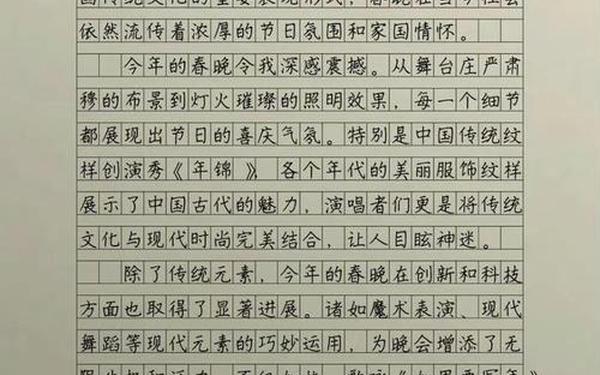 国传统文化的重要表现形式，春晚在当今社会
依然流传着浓厚的节日氛围和家国情怀。
今年的春晚令我深感震撼。从舞台庄严肃
穆的布景到灯火璀璨的照明效果，每一个细节
都展现出节日的喜庆气氛。特别是中国传统纹
样创演秀《年锦》，各个年代的美丽服饰纹样
展示了中国古代的魅力，演唱者们更是将传统
文化与现代时尚完美结合，让人目眩神迷。
除了传统元素，今年的春晚在创新和科技
方面也取得了显著进展。诸如魔术表演、现代
舞蹈等现代元素的巧妙运用，为晚会增添了无